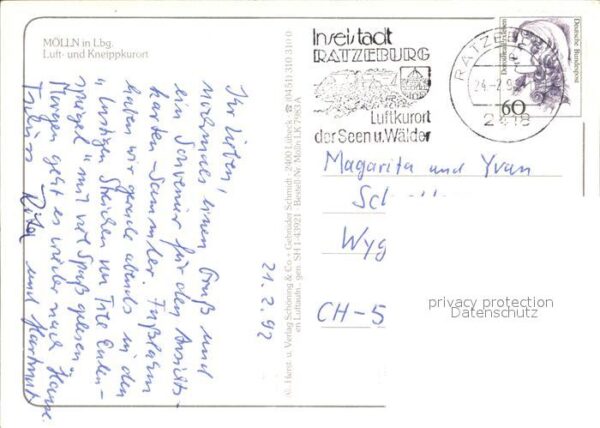 MÖLLN in Lbg.
Luft- und Kneippkurort
Ihr Lieben,
nochmals einen Gruß und
ein Souvenir für den Ansichts-
karten-Sammler.
haben wir gerade abends in den
"lustigen Streichen von Till Eulen-
spiegel" mit viel Spaß gelesen.
Morgen geht es wieder nach Hause.
Tschüss Rita und Hartmut
21.2.92
Verlag Schöning & Co + Gebrüder Schmidt 2400 Lübeck ☎ (0451) 310310
en Luftaufn. gen. SH 1-43921 Bestell Nr. Mölln LK 7983 A
Inselstadt
RATZEBURG
Luftkurort
der Seen u. Wälder
RATZEBURG
2418
Deutsche Bundespost
60
Magarita und Yvan
Sch
Wyg
CH-5
privacy protection
Datenschutz